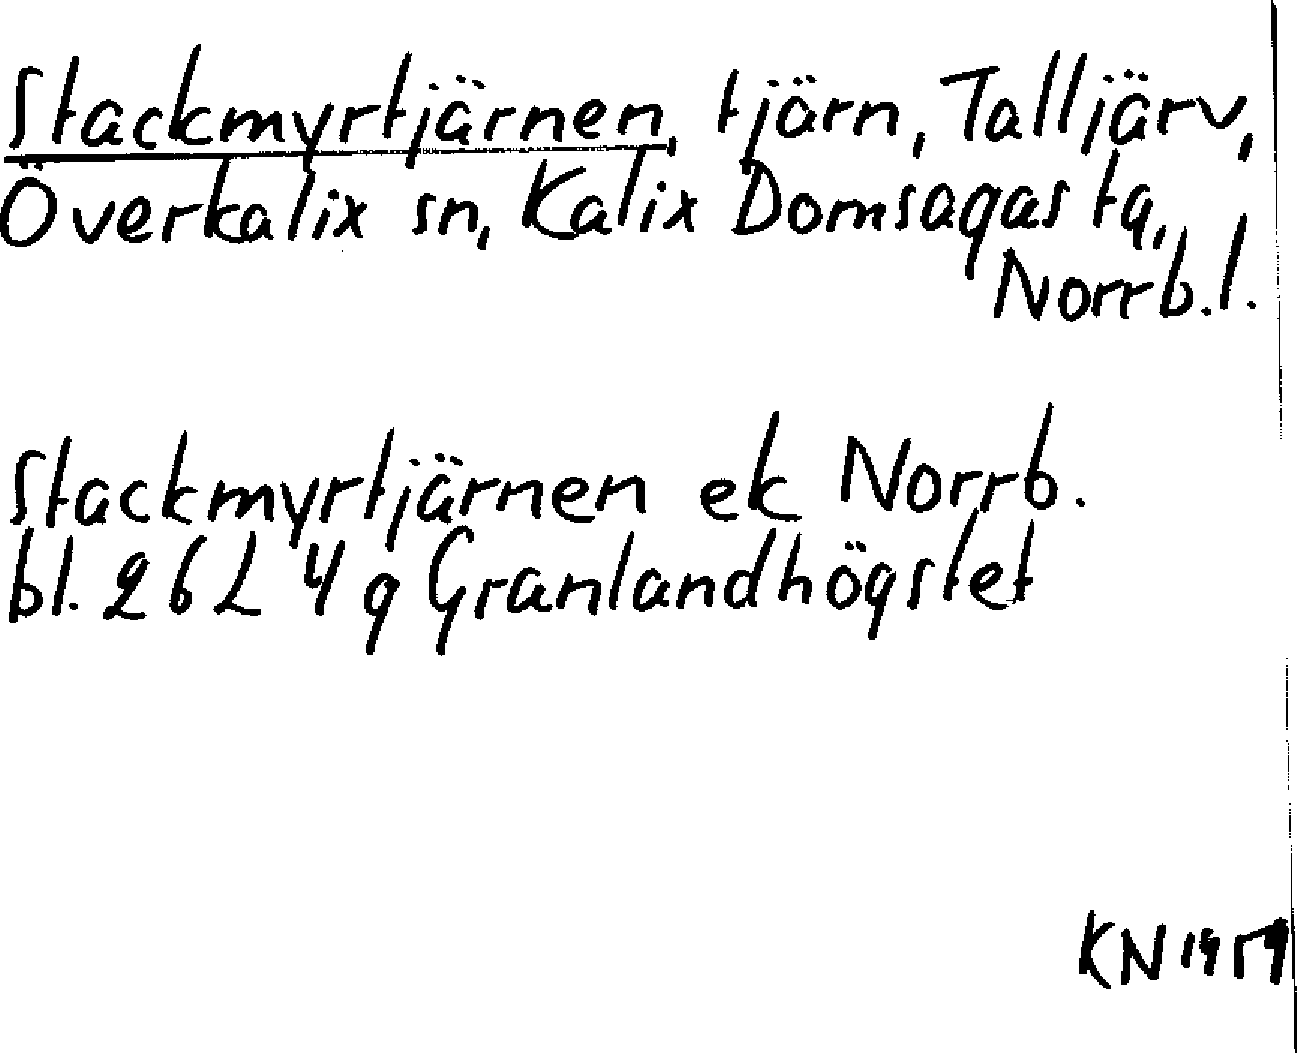 Stackmyrtjärnen, tjärn, Talljärv,
Överkalix sn, Kalix Domsagas tg,
Norrb.l.
Stackmyrtjärnen ek Norrb.
bl. 26L 4g Granlandhögstet
KN 1959